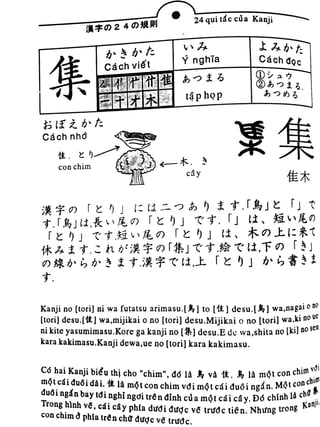 漢字の24の規則
24 qui tắc của Kanji
かきかた
Cách viết
いみ
Ý nghĩa
よみかた
Cách đọc
集
あつまる
tập họp
①シュウ
②あつまる.
あつめる
一十才木
おぼえかた
Cách nhớ
隹. とり
con chim
木. き
cây
集
隹木
漢字の「とり」には二つあります.「鳥」と「」で
す.「鳥」は,長い尾の「とり」です.「」は、短い尾の
「とり」です.短い尾の「とり」は、木の上に来て
休みます.これが漢字の「集」です.絵では,下の「き」
の線からかきます.漢字では,上「とり」から書きま
す.
Kanji no [tori] ni wa futatsu arimasu.[鳥] to [隹] desu.[鳥] wa,nagai o no
[tori] desu.[隹] wa,mijikai o no [tori] desu.Mijikai o no [tori] wa,ki no ue
ni kite yasumimasu.Kore ga kanji no [集] desu.E de wa,shita no [ki] no sen
kara kakimasu.Kanji dewa,ue no [tori] kara kakimasu.
Có hai Kanji biểu thị cho "chim", đó là 鳥 và 隹. 鳥 là một con chim với
một cái đuôi dài. 隹 là một con chim với một cái đuôi ngắn. Một con chim
đuôi ngắn bay tới nghỉ ngơi trên đỉnh của một cái cây. Đó chính là chữ 集
Trong hình vẽ, cái cây phía dưới được vẽ trước tiên. Nhưng trong Kanji,
con chim ở phía trên chữ được vẽ trước.